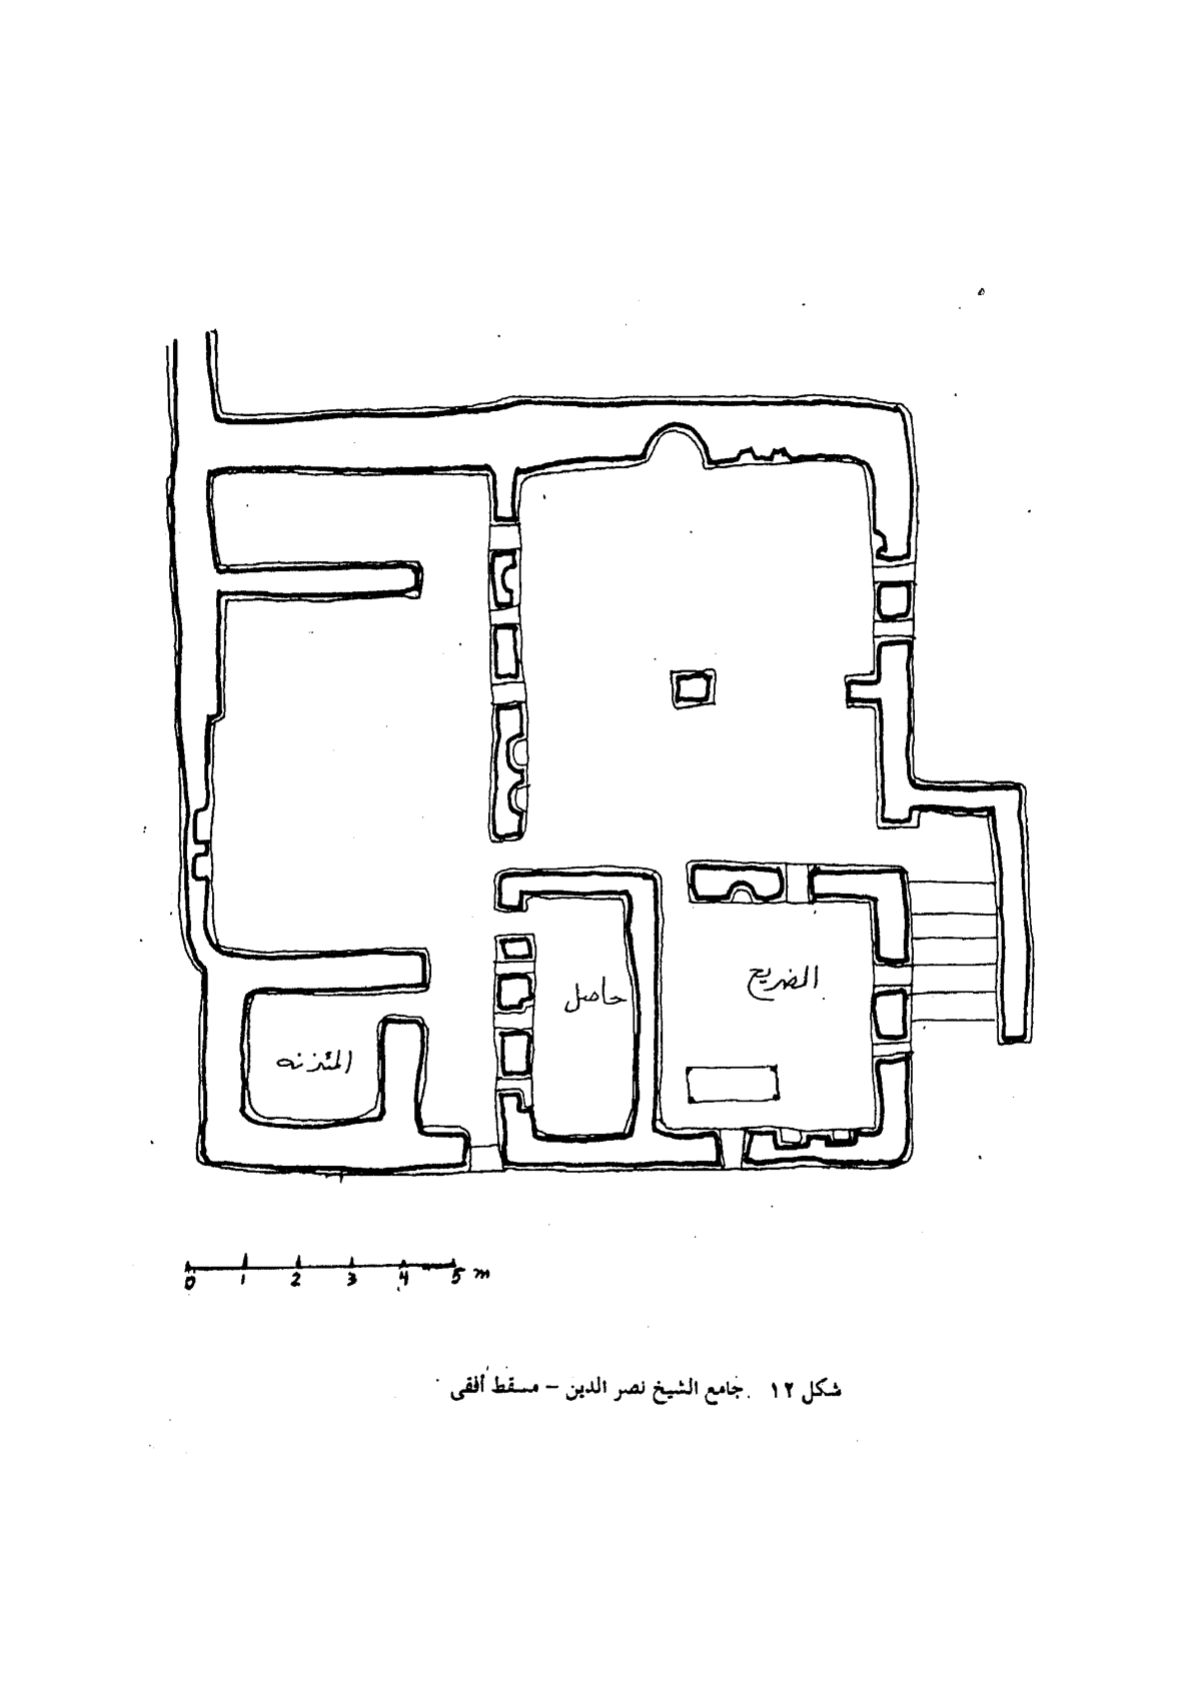 الضريح
حاصل
المئذنه
0 1 2 3 4 5 m
شكل ١٢ . جامع الشيخ نصر الدين – مسقط أفقى